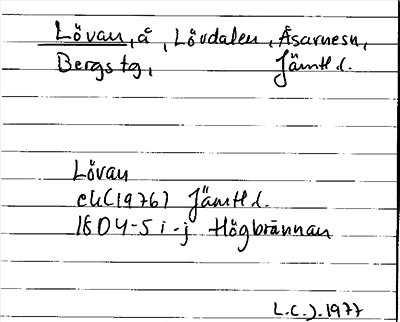 Lövan, å, Lövdalen, Åsarnesn,
Bergs tg, Jämtl.
Lövan
ek(1976) Jämtl.
18D4-5i-j Högbrännan
L.C.J. 1977